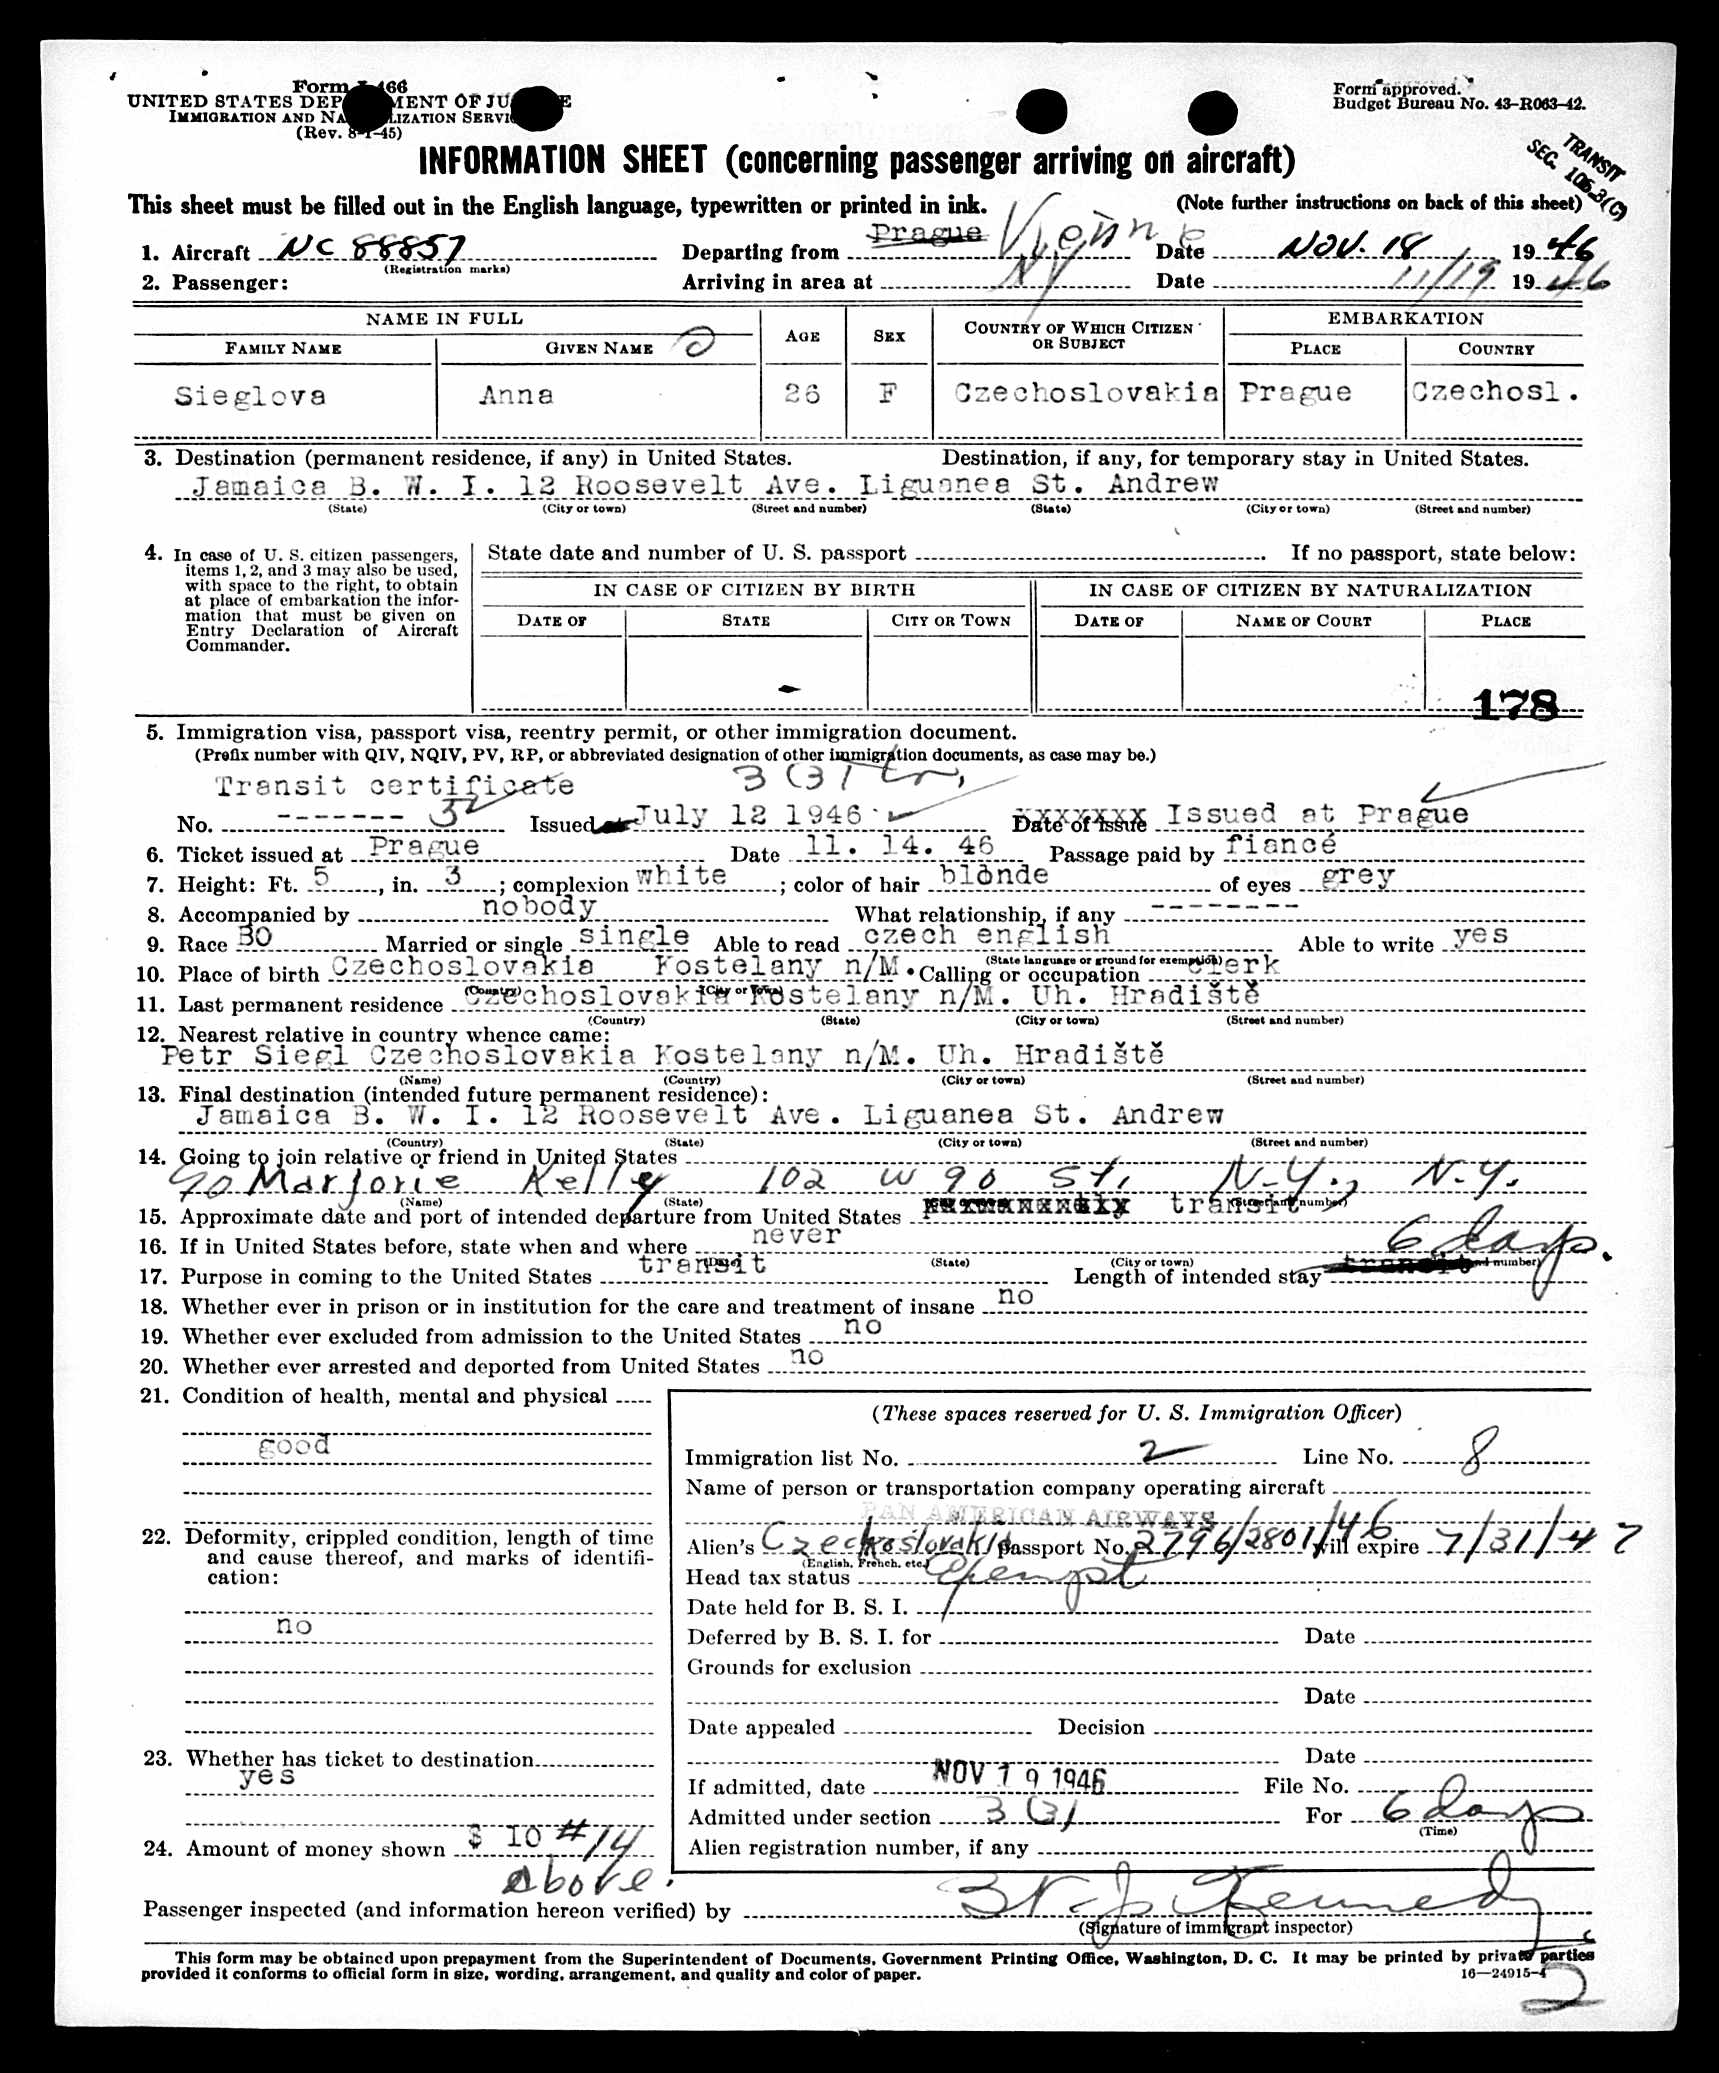 Form I-466
UNITED STATES DEPARTMENT OF JUSTICE
IMMIGRATION AND NATURALIZATION SERVICE
(Rev. 8-1-45)
Form approved.
Budget Bureau No. 43-R063-42.
TRANSIT
SEC. 106.3(C)
INFORMATION SHEET (concerning passenger arriving on aircraft)
This sheet must be filled out in the English language, typewritten or printed in ink. (Note further instructions on back of this sheet)
1. Aircraft NC 88857 Departing from Prague Vienna Date Nov. 18 1946
(Registration marks)
2. Passenger: Arriving in area at NY Date 11/19 1946
NAME IN FULL AGE SEX COUNTRY OF WHICH CITIZEN OR SUBJECT EMBARKATION
FAMILY NAME GIVEN NAME PLACE COUNTRY
Sieglova Anna 26 F Czechoslovakia Prague Czechosl.
3. Destination (permanent residence, if any) in United States. Destination, if any, for temporary stay in United States.
Jamaica B. W. I. 12 Roosevelt Ave. Liguanea St. Andrew
(State) (City or town) (Street and number) (State) (City or town) (Street and number)
4. In case of U. S. citizen passengers, items 1, 2, and 3 may also be used, with space to the right, to obtain at place of embarkation the information that must be given on Entry Declaration of Aircraft Commander.
State date and number of U. S. passport If no passport, state below:
IN CASE OF CITIZEN BY BIRTH IN CASE OF CITIZEN BY NATURALIZATION
DATE OF STATE CITY OR TOWN DATE OF NAME OF COURT PLACE
178
5. Immigration visa, passport visa, reentry permit, or other immigration document.
(Prefix number with QIV, NQIV, PV, RP, or abbreviated designation of other immigration documents, as case may be.)
Transit certificate 3(3) tr.
No. ------- Issued at July 12 1946 Date of Issue Issued at Prague
6. Ticket issued at Prague Date 11. 14. 46 Passage paid by fiancé
7. Height: Ft. 5, in. 3; complexion white; color of hair blonde of eyes grey
8. Accompanied by nobody What relationship, if any --------
9. Race BO Married or single single Able to read czech english Able to write yes
(State language or ground for exemption)
10. Place of birth Czechoslovakia Kostelany n/M. Calling or occupation clerk
(Country) (City or Town)
11. Last permanent residence Czechoslovakia Kostelany n/M. Uh. Hradiště
(Country) (State) (City or town) (Street and number)
12. Nearest relative in country whence came:
Petr Siegl Czechoslovakia Kostelany n/M. Uh. Hradiště
(Name) (Country) (City or town) (Street and number)
13. Final destination (intended future permanent residence):
Jamaica B. W. I. 12 Roosevelt Ave. Liguanea St. Andrew
(Country) (State) (City or town) (Street and number)
14. Going to join relative or friend in United States
Marjorie Kelly 102 W 90 St, N.Y., N.Y.
(Name) (State) (Street and number)
15. Approximate date and port of intended departure from United States transit
16. If in United States before, state when and where never
(Date) (State) (City or town) (Street and number)
17. Purpose in coming to the United States transit Length of intended stay transit 6 days.
18. Whether ever in prison or in institution for the care and treatment of insane no
19. Whether ever excluded from admission to the United States no
20. Whether ever arrested and deported from United States no
21. Condition of health, mental and physical
good
22. Deformity, crippled condition, length of time and cause thereof, and marks of identification:
no
23. Whether has ticket to destination
yes
24. Amount of money shown $ 10 #14
above.
(These spaces reserved for U. S. Immigration Officer)
Immigration list No. 2 Line No. 8
Name of person or transportation company operating aircraft
PAN AMERICAN AIRWAYS
Alien's Czechoslovakia passport No. 2796/2801/46 will expire 7/31/47
(English, French, etc.)
Head tax status Exempt
Date held for B. S. I. /
Deferred by B. S. I. for Date
Grounds for exclusion
Date
Date appealed Decision
Date
If admitted, date NOV 19 1946 File No.
Admitted under section 3(3) For 6 days
(Time)
Alien registration number, if any
Passenger inspected (and information hereon verified) by Kennedy
(Signature of immigrant inspector)
This form may be obtained upon prepayment from the Superintendent of Documents, Government Printing Office, Washington, D. C. It may be printed by private parties
provided it conforms to official form in size, wording, arrangement, and quality and color of paper. 16—24915-4
2